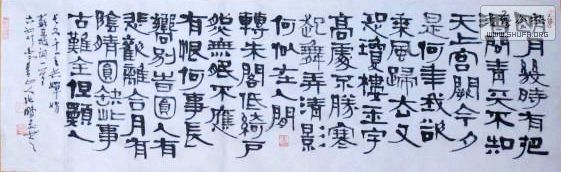 明月幾時有把
酒問青天不知
天上宮闕今夕
是何年我欲
乘風歸去又
恐瓊樓玉宇
高處不勝寒
起舞弄清影
何似在人間
轉朱閣低綺戶
照無眠不應
有恨何事長
嚮別旹圓人有
悲歡離合月有
陰晴圓缺此事
古難全但願人
長久千里共嬋娟